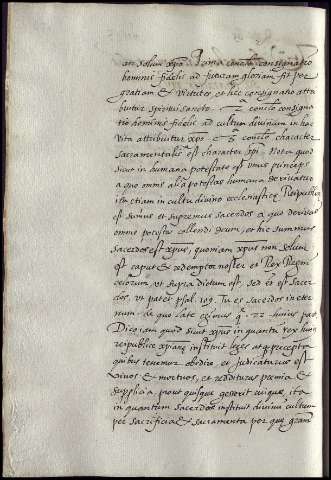 att solum xpo. Prima conclo consignatio
hominis fidelis ad futuram gloriam fit per
gratiam & virtutes et hec consignatio attri
buitur spiritui sancto. 2ª conclo consigna
tio hominis fidelis ad cultum divinum in hac
vita attribuitur xpo. 3ª conclo character
sacramentalis est character xpi. Nota quod
sicut in humana potestate est unus princeps
a quo omnis alia potestas humana derivatur
ita etiam in cultu divino ecclesiastice Reipublice
est summus et supremus sacerdos a quo derivatur
omnis potestas colendi deum, et hic summus
sacerdos est xpus, quoniam xpus non solum
est caput & redemptor noster et Rex Regni
celorum ut supra dictum est, sed et est sacer
dos, ut patet psal. 109. Tu es sacerdos in eter
num. de quo late egimus q. 22 huius par.
Dico etiam quod sicut xpus in quantum rex hum
reipublice xpiane instituit leges atque precepta
quibus tenemur obedire et judicaturus est
vivos & mortuos, et redditurus premia &
supplicia prout quisque gesserit ita
in quantum sacerdos instituit divinum cultum
per sacrificia & sacramenta per que gram